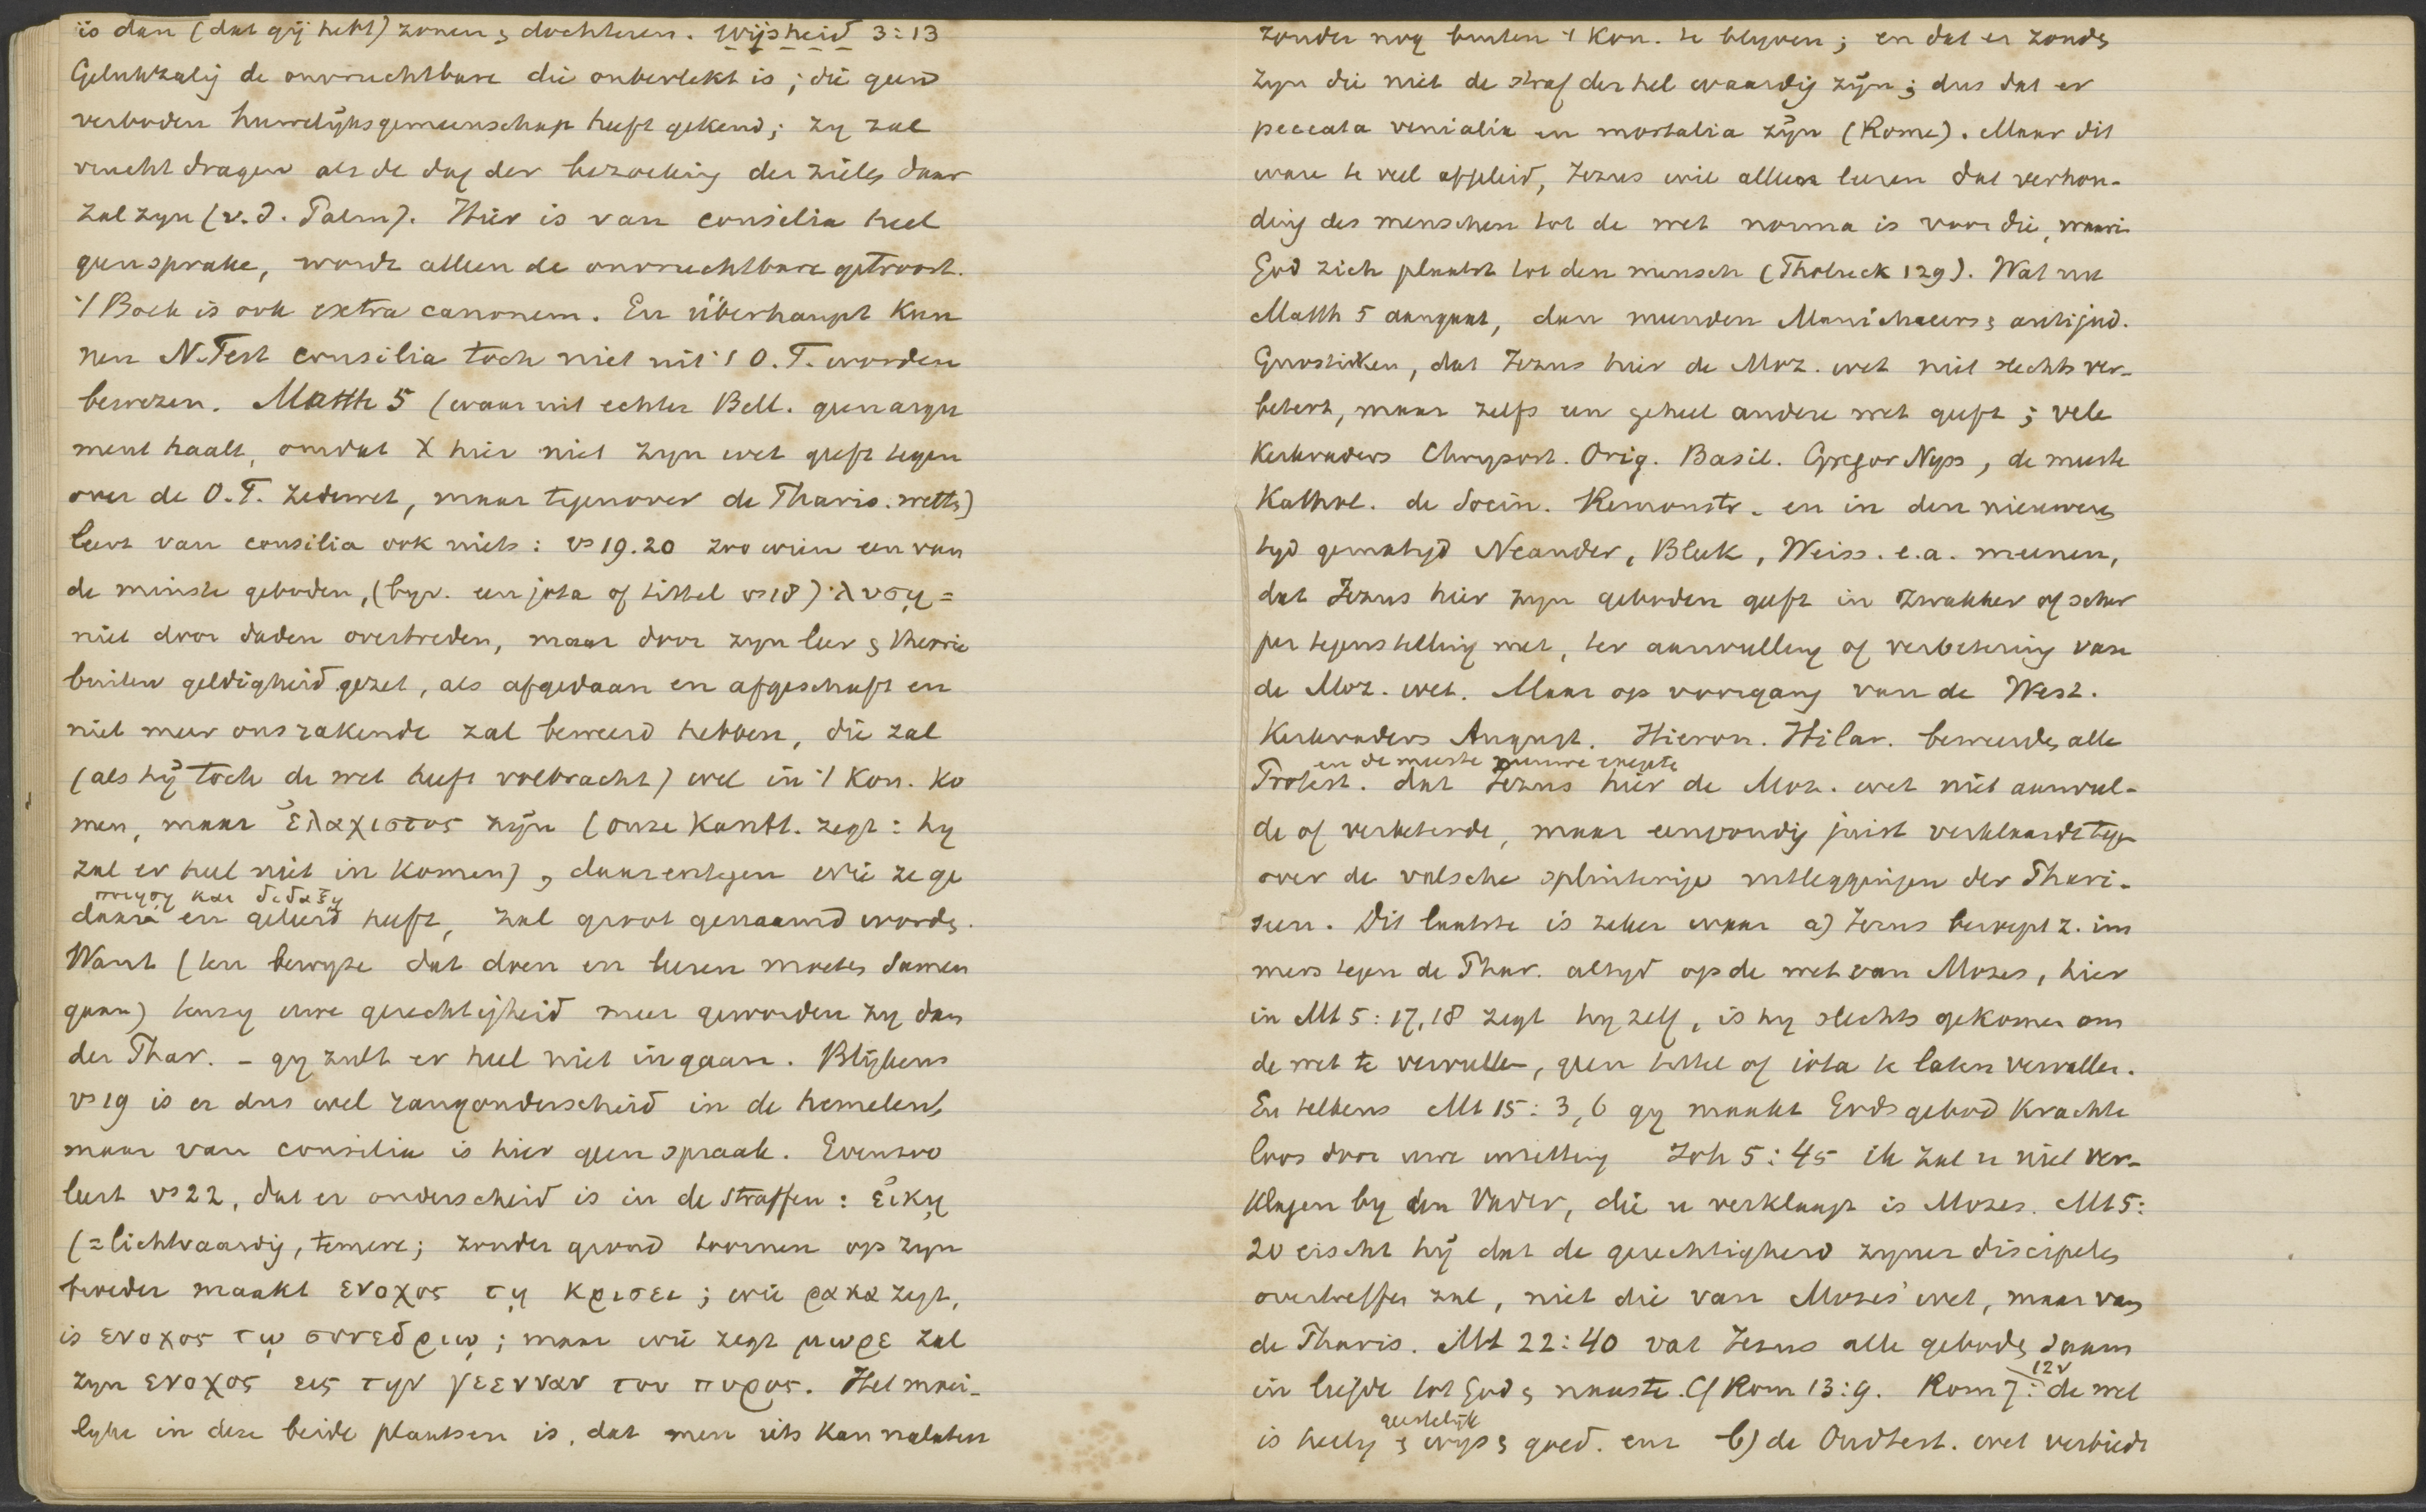 is dan (dat gij hebt) zonen & dochteren. Wijsheid 3:13
Gelukzalig de onvruchtbare die onbevlekt is; die geen
verboden huwelijksgemeenschap heeft gekend; zy zal
vrucht dragen als de dag der bezoeking der zielen daar
zal zyn (v.d. Palm). Hier is van consilia heel
geen sprake, wordt alleen de onvruchtbare getroost.
't Boek is ook extra canonem. En überhaupt kun
nen N.Test consilia toch niet uit 't O.T. worden
bewezen. Matth 5 (waar uit echter Bell. geen argu
ment haalt, omdat X hier niet zyn wet geeft tegen
over de O.T. zedewet, maar tegenover de Pharis. wetten)
leert van consilia ook niets: vs 19.20 zoo wien een van
de minste geboden, (byv. een jota of tittel vs 18) λυσῃ =
niet door daden overtreden, maar door zyn leer & theorie
buiten geldigheid gezet, als afgedaan en afgeschaft en
niet meer ons rakende zal beweerd hebben, die zal
(als hij toch de wet heeft volbracht) wel in 't Kon. ko
men, maar ἐλαχιστος zijn (onze Kantt. zegt: hy
zal er heel niet in komen), daarentegen wie ze ge
ποιησῃ και διδαξῃ
daan en geleerd heeft, zal groot genaamd worden.
Want (ten bewyze dat doen en leeren moeten samen
gaan) tenzy uwe gerechtigheid meer geworden zy dan
der Phar. - gy zult er heel niet ingaan. Blijkens
vs 19 is er dus wel rangonderscheid in de hemelen,
maar van consilia is hier geen spraak. Evenzoo
leert vs 22, dat er onderscheid is in de straffen: εἰκῃ
(= lichtvaardig, temere; zonder grond toornen op zyn
broeder maakt ενοχος τῃ κρισει; wie ρακα zegt,
is ενοχος τῳ συνεδριῳ; maar wie zegt μωρε zal
zyn ενοχος εις την γεενναν του πυρος. Het moei-
lyke in deze beide plaatsen is, dat men iets kan nalaten
zonder nog buiten 't Kon. te blyven; en dat er zonden
zyn die niet de straf der hel waardig zijn; dus dat er
peccata venialia en mortalia zijn (Rome). Maar dit
ware te veel afgeleid, Jezus wil alleen leeren dat verhou-
ding des menschen tot de wet norma is voor die, waarin
God zich plaatst tot den mensch (Tholuck 129). Wat nu
Matth 5 aangaat, dan meenden Manichaeers & antijud.
Gnostieken, dat Jezus hier de Moz. wet niet slechts ver-
betert, maar zelfs een geheel andere wet geeft; vele
Kerkvaders Chrysost. Orig. Basil. Gregor Nyss, de meeste
Kathol. de Socin. Remonstr. en in den nieuweren
tyd gematigd Neander, Bleek, Weiss. e.a. meenen,
dat Jezus hier zyn geboden geeft in zwakker of scher
per tegenstelling met, ter aanvulling of verbetering van
de Moz. wet. Maar op voorgang van de West.
Kerkvaders August. Hieron. Hilar. beweerden alle
en de meeste nieuwe exegete
Protest. dat Jezus hier de Moz. wet niet aanvul-
de of verbeterde, maar eenvoudig juist verklaarde tegen
over de valsche splinterige uitleggingen der Phari-
seen. Dit laatste is zeker waar a) Jezus beroept z. im
mers tegen de Phar. altyd op de wet van Mozes, hier
in Mt 5:17,18 zegt hy zelf, is hy slechts gekomen om
de wet te vervullen, geen tittel of iota te laten vervallen.
En telkens Mt 15:3,6 gy maakt Gods gebod krachte
loos door uwe inzetting Joh 5:45 ik zal u niet ver-
klagen by den Vader, die u verklaagt is Mozes. Mt 5:
20 eischt hij dat de gerechtigheid zyner discipelen
overtreffen zal, niet die van Mozes' wet, maar van
de Pharis. Mt 22:40 vat Jezus alle geboden saam
in liefde tot God & naaste. Cf Rom 13:9. Rom 7:12v de wet
geestelijk
is heilig & wijs & goed. enz b) de Oudtest. wet verbiedt